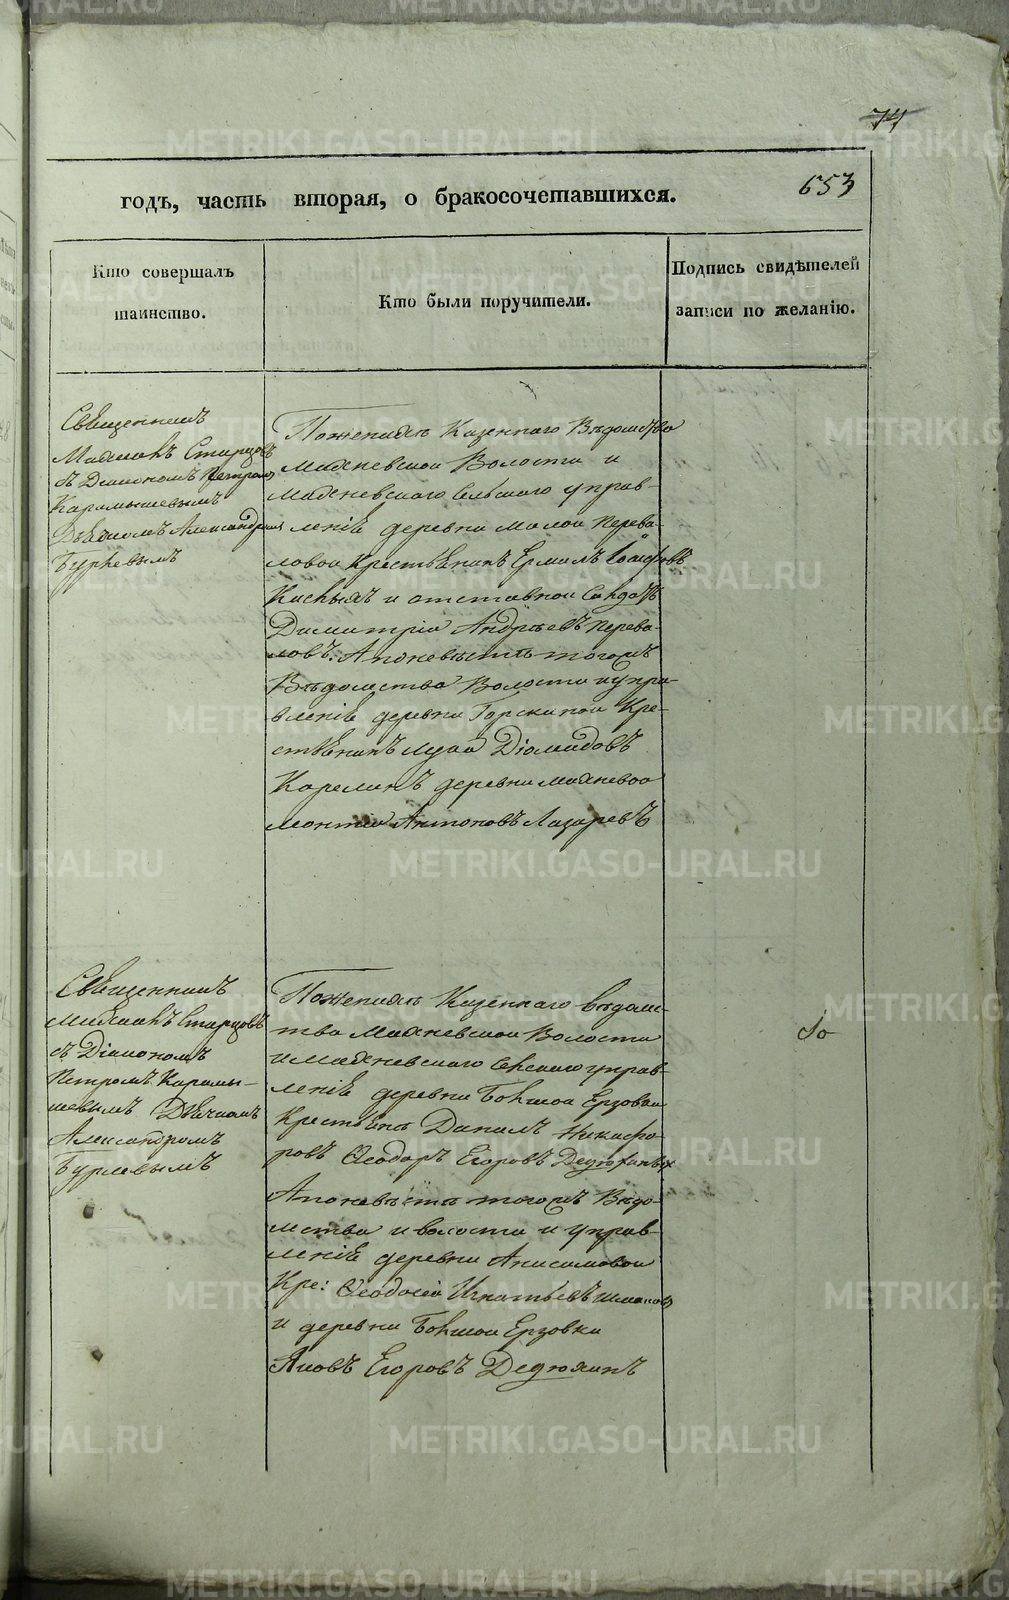 74
653
годъ, часть вторая, о бракосочетавшихся.
Кто совершалъ
таинство.
Кто были поручители.
Подпись свидѣтелей
записи по желанію.
Священникъ
Старцовъ
съ Діакономъ Петромъ
Карамышевымъ
Дьячкомъ Александромъ
Бурлевымъ
По женихѣ Казеннаго Вѣдомства
Волости и
сельскаго управ-
леніе деревни Малой Перева-
ловой Крестьянинъ Ермилъ
и отставной Солдатъ
Димитрій Андреевъ Перева-
ловъ. А по невѣстѣ тогожъ
Вѣдомства Волости и упра-
вленіе деревни Горскиной Кре-
стьянинъ Лука Діомидовъ
Карелинъ деревни
Антоновъ Лазаревъ
Священникъ
Старцовъ
съ Діакономъ
Петромъ Карамы-
шевымъ Дьячкомъ
Александромъ
Бурлевымъ
По женихѣ Казеннаго вѣдомс-
тва Волости
и управ-
леніе деревни Большой Ерзовки
Данилъ Никифо-
ровъ Ѳеодоръ Егоровъ
А по невѣстѣ тогожъ Вѣдо-
мства и волости и управ-
леніе деревни Анисимовой
Кре: Ѳеодосій Игнатьевъ
и деревни Большой Ерзовки
Яковъ Егоровъ Дедюхинъ
METRIKI.GASO-URAL.RU